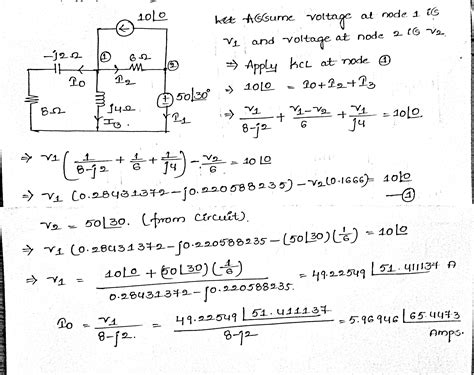 10∠0
-j2Ω
①
6Ω
②
I0
I2
8Ω
j4Ω
I3
50∠30°
I1
Let Assume voltage at node 1 is
V1 and voltage at node 2 is V2
⇒ Apply KCL at node ①
⇒ 10∠0 = I0+I2+I3
⇒ V1/(8-j2) + (V1-V2)/6 + V1/j4 = 10∠0
⇒ V1 (1/(8-j2) + 1/6 + 1/j4) - V2/6 = 10∠0
⇒ V1 (0.28431372-j0.220588235) - V2(0.1666) = 10∠0 —①
V2 = 50∠30. (from circuit).
⇒ V1 (0.28431372-j0.220588235 - (50∠30)(1/6) = 10∠0
⇒ V1 = (10∠0 + (50∠30)(1/6))/(0.28431372-j0.220588235) = 49.22549∠51.411137 A
I0 = V1/(8-j2) = 49.22549∠51.411137/(8-j2) = 5.96946∠65.4473 Amps.